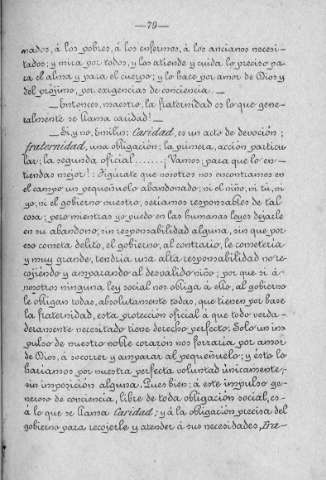 —79—
nados, á los pobres, á los enfermos, á los ancianos necesi-
tados; y mira por todos, y los atiende y cuida lo preciso pa-
ra el alma y para el cuerpo; y lo hace por amor de Dios y
del prójimo, por exigencias de conciencia.—
—Entonces, maestro, la fraternidad es lo que gene-
ralmente se llama caridad!—
—Sí y no, Emilín: Caridad, es un acto de devoción;
fraternidad, una obligación; la primera, acción particu-
lar; la segunda oficial.......¡Vamos; para que lo en-
tiendas mejor!: Figúrate que nosotros nos encontramos en
el campo un pequeñuelo abandonado; ni el niño, ni tú, ni
yo, ni el gobierno nuestro, seríamos responsables de tal
cosa; pero mientras yo puedo en las humanas leyes dejarle
en su abandono, sin responsabilidad alguna, sin que por
eso cometa delito, el gobierno, al contrario, le cometería
y muy grande, tendría una alta responsabilidad no re-
cojiendo y amparando al desvalido niño; por que si á
nosotros ninguna ley social nos obliga á ello, al gobierno
le obligan todas, absolutamente todas, que tienen por base
la fraternidad, esta protección oficial á que todo verda-
deramente necesitado tiene derecho perfecto. Solo un im-
pulso de nuestro noble corazón nos forzaría por amor
de Dios, á socorrer y amparar al pequeñuelo; y ésto lo
haríamos por nuestra perfecta voluntad únicamente,
sin imposición alguna. Pues bien: á este impulso ge-
neroso de conciencia, libre de toda obligación social, es
á lo que se llama Caridad; y á la obligación precisa del
gobierno para recojerle y atender á sus necesidades, Fra-